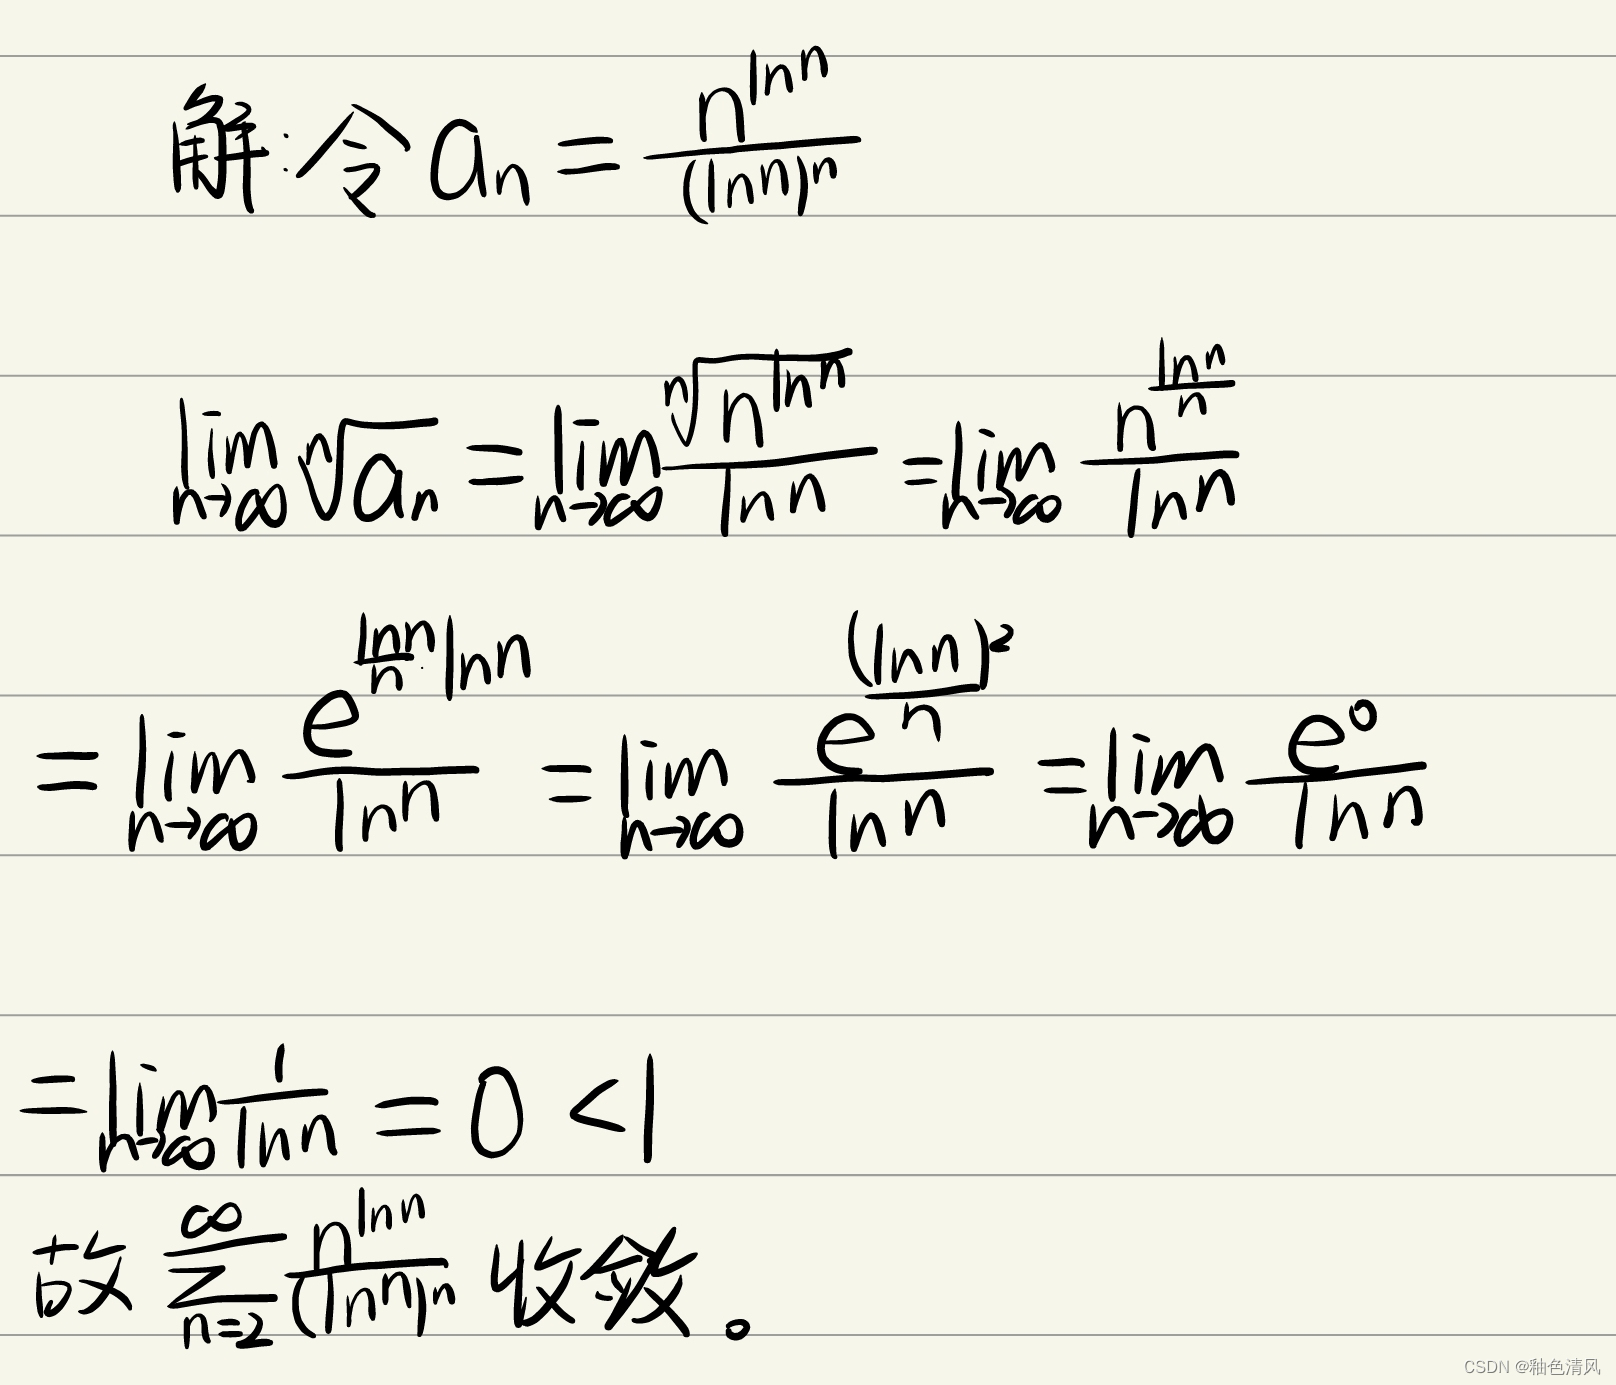 解:令 $a_n = \frac{n^{\ln n}}{(\ln n)^n}$
$\lim_{n\to\infty} \sqrt[n]{a_n} = \lim_{n\to\infty} \frac{\sqrt[n]{n^{\ln n}}}{\ln n} = \lim_{n\to\infty} \frac{n^{\frac{\ln n}{n}}}{\ln n}$
$= \lim_{n\to\infty} \frac{e^{\frac{\ln n}{n} \cdot \ln n}}{\ln n} = \lim_{n\to\infty} \frac{e^{\frac{(\ln n)^2}{n}}}{\ln n} = \lim_{n\to\infty} \frac{e^0}{\ln n}$
$= \lim_{n\to\infty} \frac{1}{\ln n} = 0 < 1$
故 $\sum_{n=2}^{\infty} \frac{n^{\ln n}}{(\ln n)^n}$ 收敛。
CSDN @釉色清风